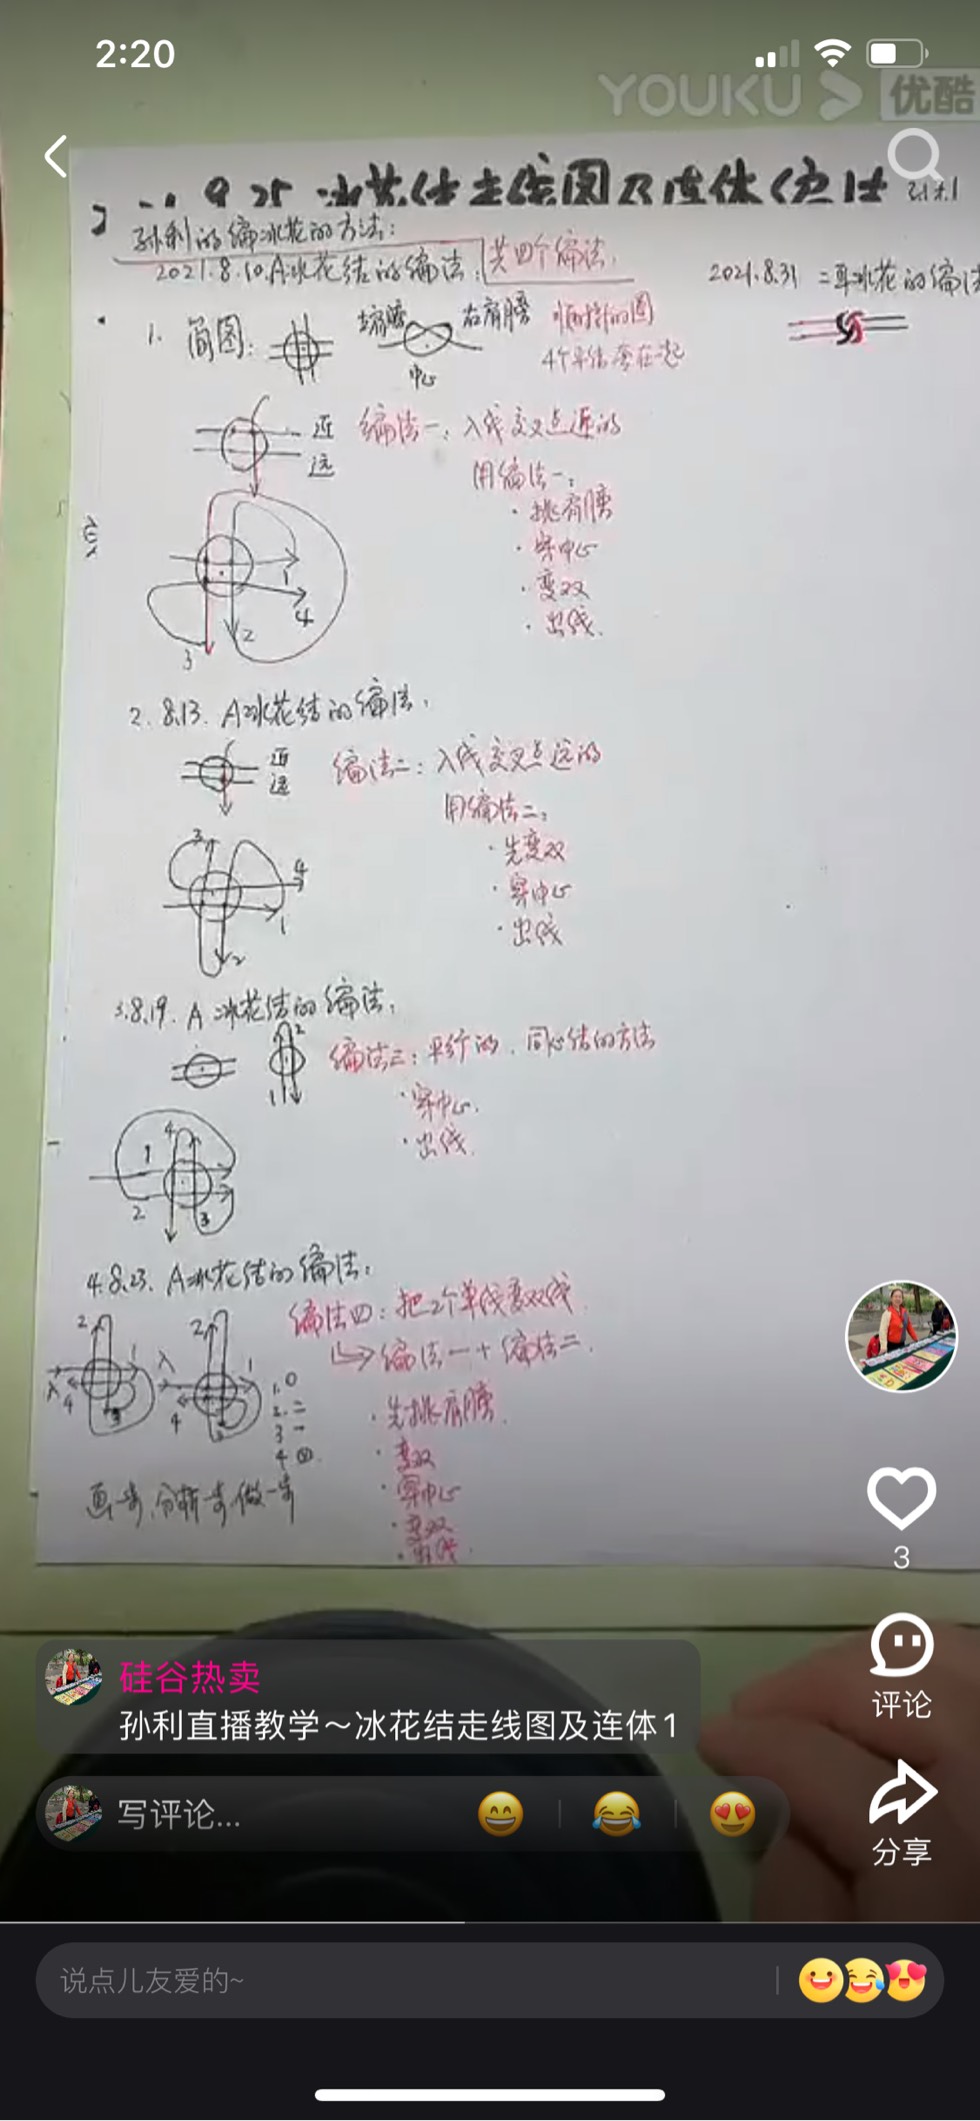 2:20
YOUKU 优酷
9.25 冰花结走线图及连体(方法 孙利
孙利的编冰花的方法:
2021.8.10.A冰花结的编法, 共四个编法.
2021.8.31 二耳冰花的编法
1. 简图: 左肩膀 右肩膀
中心
4个平结套在一起
近
远
编法一: 入线交叉点近的
用编法一:
· 挑肩膀
· 穿中心
· 变双
· 出线.
1
4
2
3
2. 8.13. A冰花结的编法.
近
远
编法二: 入线交叉点远的
用编法二:
· 先变双
· 穿中心
· 出线
3
4
1
2
3.8.19. A 冰花结的编法.
2
1
编法三: 平行的. 同心结的方法
· 穿中心.
· 出线.
4
1
2
3
4.8.23. A冰花结的编法:
编法四: 把2个单线变双线
↳编法一+编法二.
2 1 入 4 3
2 1 入 4 3
1. 0
2. 二
3 一
4
· 先挑肩膀.
· 变双
· 穿中心
· 变双
· 出线.
画一步,分析一步,做一步
3
硅谷热卖
孙利直播教学～冰花结走线图及连体1
评论
写评论...
分享
说点儿友爱的~